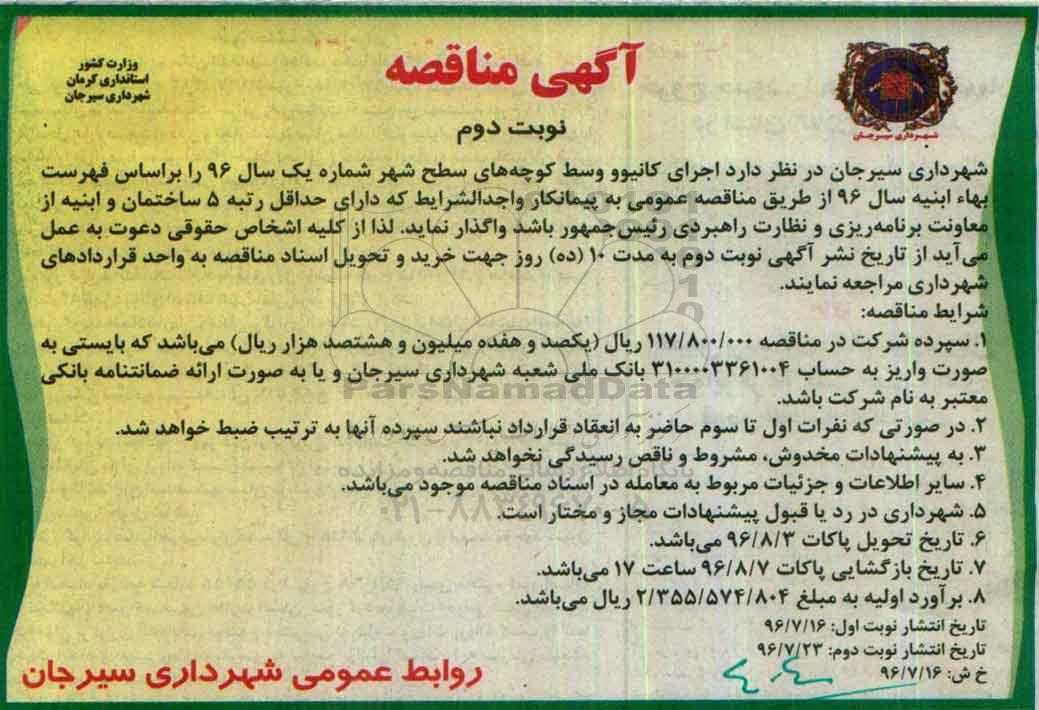 آگهی مناقصه
وزارت کشور
استانداری کرمان
شهرداری سیرجان
شهرداری سیرجان
نوبت دوم
شهرداری سیرجان در نظر دارد اجرای کانیوو وسط کوچه‌های سطح شهر شماره یک سال ۹۶ را براساس فهرست
بهاء ابنیه سال ۹۶ از طریق مناقصه عمومی به پیمانکار واجدالشرایط که دارای حداقل رتبه ۵ ساختمان و ابنیه از
معاونت برنامه‌ریزی و نظارت راهبردی رئیس‌جمهور باشد واگذار نماید. لذا از کلیه اشخاص حقوقی دعوت به عمل
می‌آید از تاریخ نشر آگهی نوبت دوم به مدت ۱۰ (ده) روز جهت خرید و تحویل اسناد مناقصه به واحد قراردادهای
شهرداری مراجعه نمایند.
شرایط مناقصه:
۱. سپرده شرکت در مناقصه ۱۱۷/۸۰۰/۰۰۰ ریال (یکصد و هفده میلیون و هشتصد هزار ریال) می‌باشد که بایستی به
صورت واریز به حساب ۳۱۰۰۰۰۳۳۶۱۰۰۴ بانک ملی شعبه شهرداری سیرجان و یا به صورت ارائه ضمانتنامه بانکی
معتبر به نام شرکت باشد.
ParsNamadData
۲. در صورتی که نفرات اول تا سوم حاضر به انعقاد قرارداد نباشند سپرده آنها به ترتیب ضبط خواهد شد.
۳. به پیشنهادات مخدوش، مشروط و ناقص رسیدگی نخواهد شد.
۴. سایر اطلاعات و جزئیات مربوط به معامله در اسناد مناقصه موجود می‌باشد.
۵. شهرداری در رد یا قبول پیشنهادات مجاز و مختار است.
۶. تاریخ تحویل پاکات ۹۶/۸/۳ می‌باشد.
۷. تاریخ بازگشایی پاکات ۹۶/۸/۷ ساعت ۱۷ می‌باشد.
۸. برآورد اولیه به مبلغ ۲/۳۵۵/۵۷۴/۸۰۴ ریال می‌باشد.
تاریخ انتشار نوبت اول: ۹۶/۷/۱۶
تاریخ انتشار نوبت دوم: ۹۶/۷/۲۳
خ ش: ۹۶/۷/۱۶
روابط عمومی شهرداری سیرجان